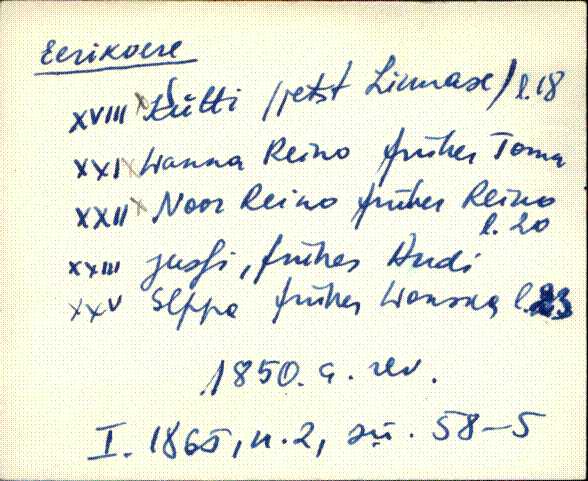 Eerikvere
XVIII Kütti (jetzt Linnase) l.18
XXI Wanna Reino früher Toma
XXII Noor Reino früher Reino
l. 20
XXIII Jussi, früher Andi
XXV Seppa früher l.23
1850. a. rev.
I. 1865, n. 2, sü. 58-5